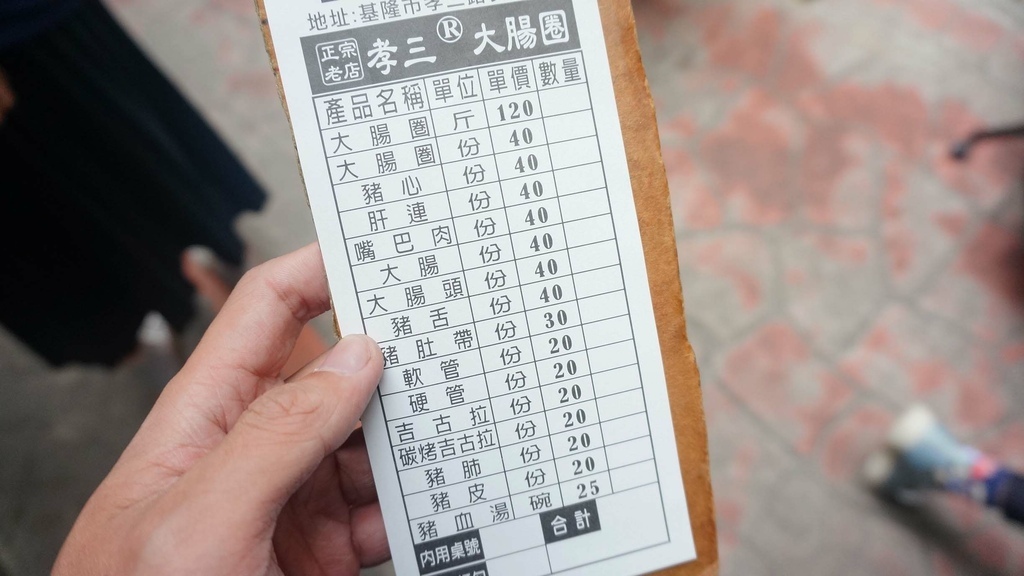 地址:基隆市孝三路
正宗老店 孝三®大腸圈
產品名稱 單位 單價 數量
大腸圈 斤 120
大腸圈 份 40
豬心 份 40
肝連 份 40
嘴巴肉 份 40
大腸 份 40
大腸頭 份 40
豬舌 份 40
豬肚帶 份 30
軟管 份 20
硬管 份 20
吉古拉 份 20
碳烤吉古拉 份 20
豬肺 份 20
豬皮 份 20
豬血湯 碗 25
內用桌號 合計